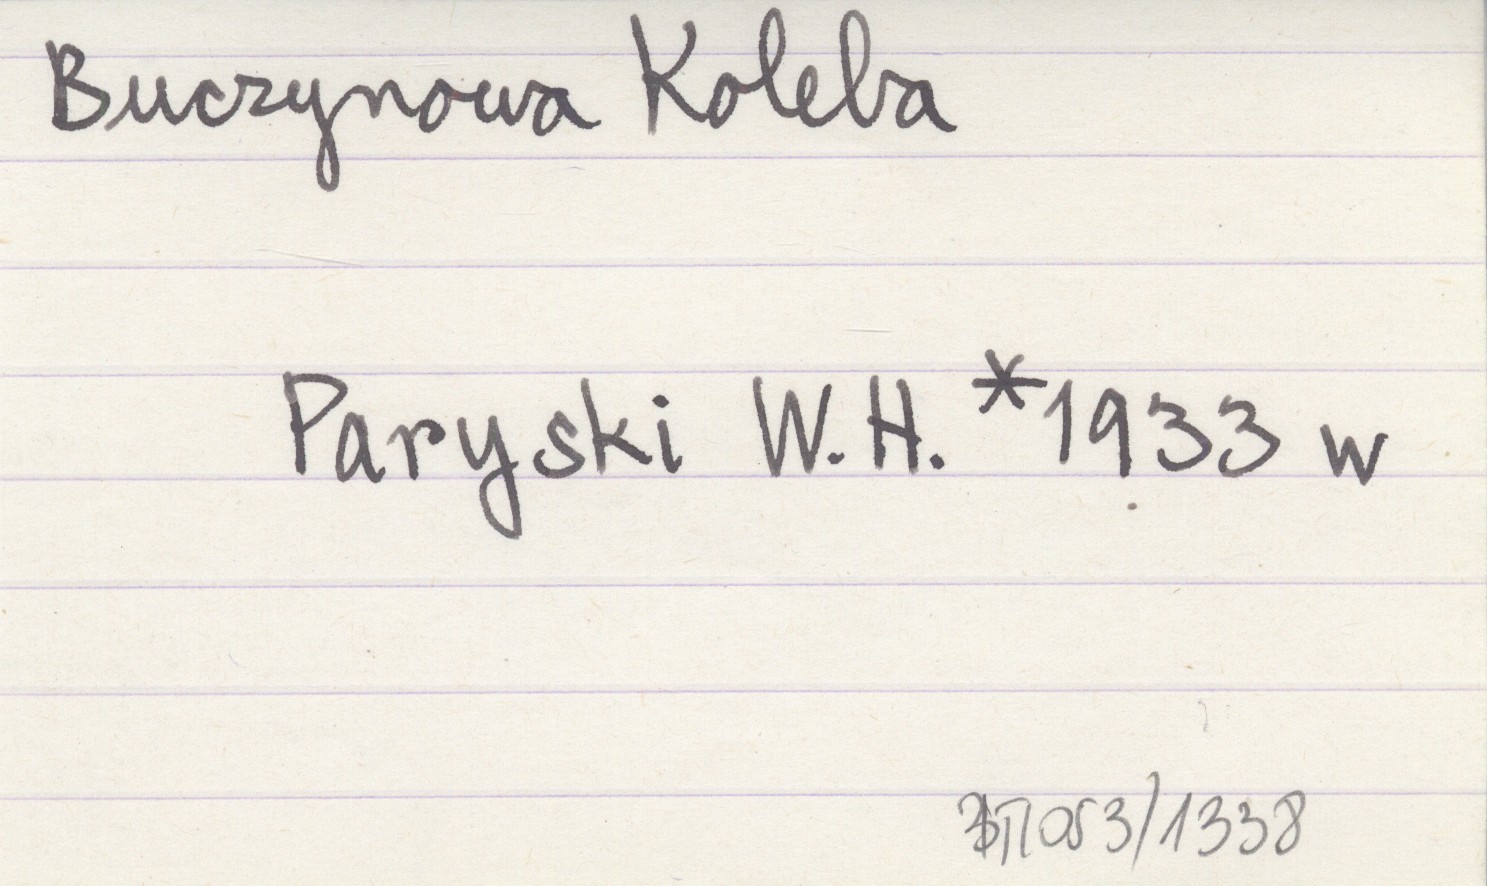 Buczynowa Koleba
Paryski W.H. *1933 w
053/1338